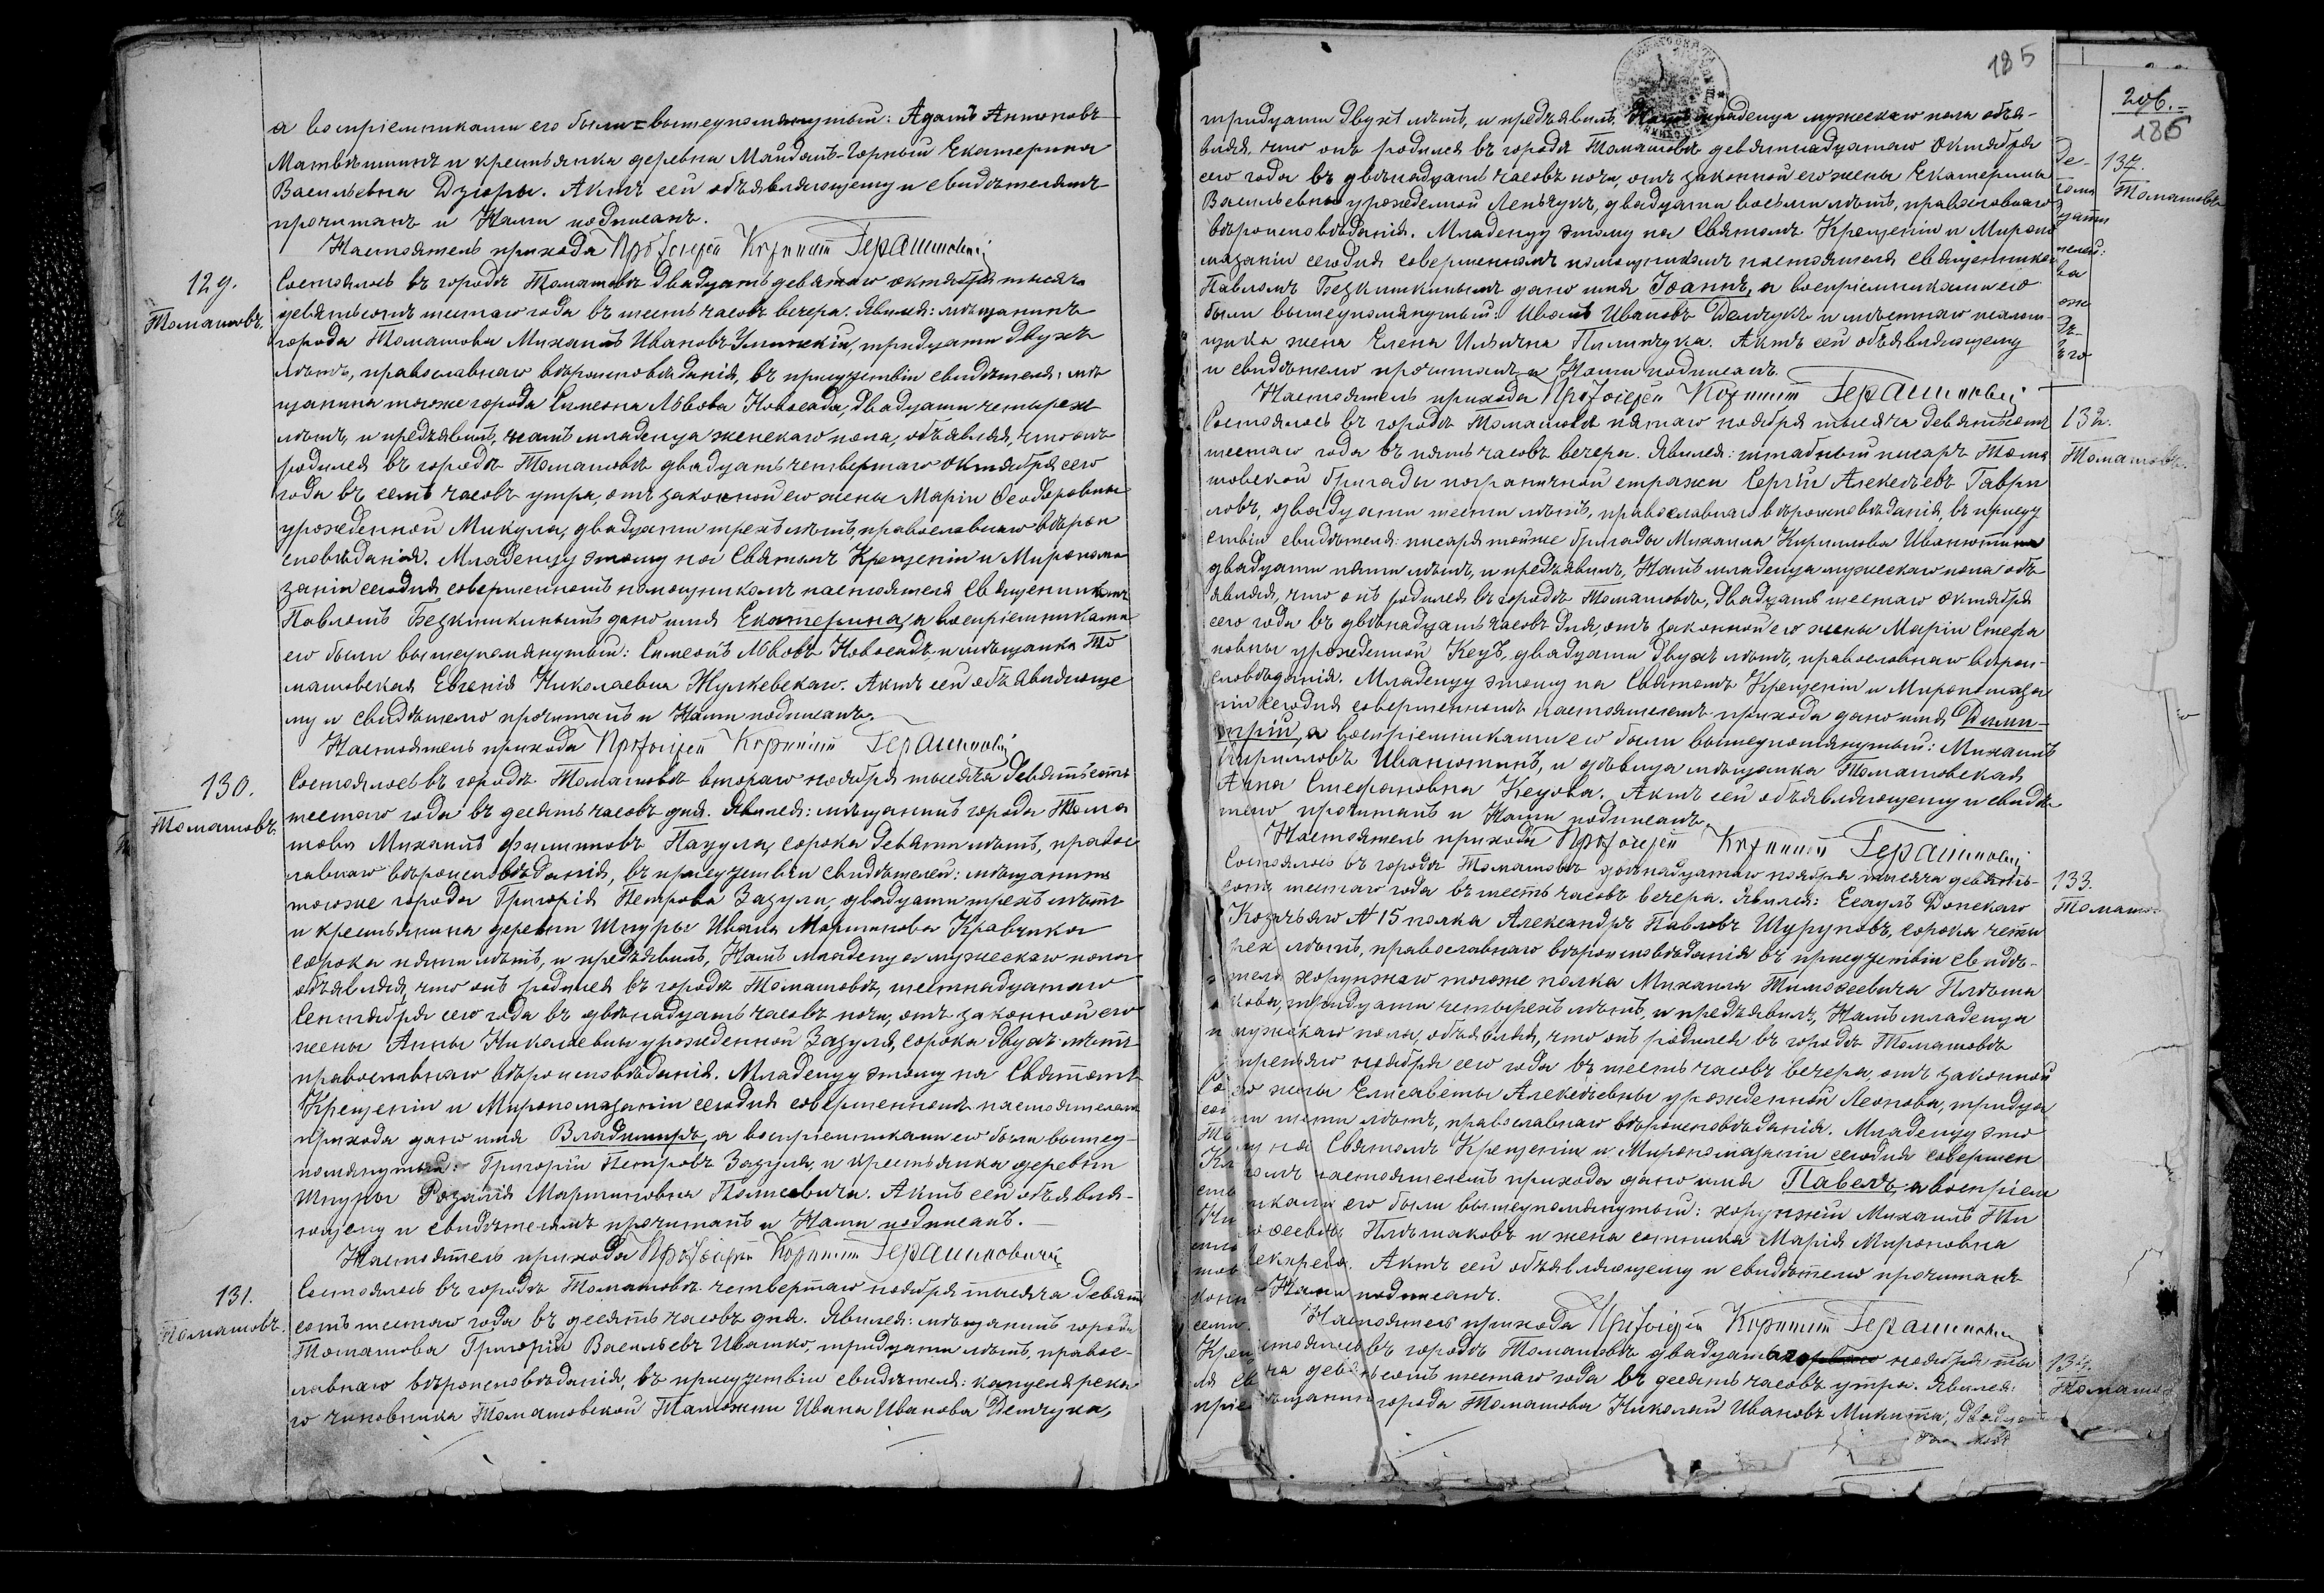 а воспріемниками его были=вышеупомянутый: Адамъ Антоновъ
Матвѣишинъ и крестьянка деревни Майданъ-Горный Екатерина
Васильевна Дзюры. Актъ сей объявляющему и свидѣтелямъ
прочитанъ и Нами подписанъ.
Настоятель прихода Протоіерей Корнилій Герашиновичъ
129.
Томашовъ.
Состоялось въ городѣ Томашовѣ двадцать девятаго октября тысяча
девятьсотъ шестаго года въ шесть часовъ вечера. Явился: мѣщанинъ
города Томашова Михаилъ Ивановъ Улинскій, тридцати двухъ
лѣтъ, православнаго вѣроисповѣданія, въ присутствіи свидѣтеля: мѣ
щанина тогоже города Симеона Львова Новосада, двадцати четырехъ
лѣтъ, и предъявилъ намъ младенца женскаго пола, объявляя, что онъ
родился въ городѣ Томашовѣ двадцать четвертаго октября сего
года въ семь часовъ утра, отъ законной его жены Маріи Ѳеодоровны
урожденной Микула, двадцати трехъ лѣтъ, православнаго вѣрои
сповѣданія. Младенцу этому на Святомъ Крещеніи и Миропома
заніи сегодня совершенномъ помощникомъ настоятеля Священникомъ
Павломъ Безкишкинымъ дано имя Екатерина, а воспріемниками
его были вышеупомянутый: Симеонъ Львовъ Новосадъ, и мѣщанка То
машовская Евгенія Николаевна Жулкевскаго. Актъ сей объявляюще
му и свидѣтелю прочитанъ и Нами подписанъ.
Настоятель прихода Протоіерей Корнилій Герашиновичъ
130.
Томашовъ.
Состоялось въ городѣ Томашовѣ втораго ноября тысяча девятьсотъ
шестаго года въ десять часовъ дня. Явился: мѣщанинъ города Тома
шова Михаилъ Филиповъ Пацула, сорока девяти лѣтъ, правос
лавнаго вѣроисповѣданія, въ присутствіи свидѣтелей: мѣщанина
тогоже города Григорія Петрова Зазули, двадцати трехъ лѣтъ
и крестьянина деревни Шкуры Ивана Мартинова Кравчика
сорока пяти лѣтъ, и предъявилъ, Намъ младенца мужескаго пола
объявляя, что онъ родился въ городѣ Томашовѣ, шестнадцатаго
Сентября сего года въ двѣнадцать часовъ ночи, отъ законной его
жены Анны Николаевны урожденной Зазуля, сорока двухъ лѣтъ
православнаго вѣроисповѣданія. Младенцу этому на Святомъ
Крещеніи и Миропомазаніи сегодня совершенномъ настоятелемъ
прихода дано имя Владимиръ, а воспріемниками его были вышеу-
помянутый: Григорій Петровъ Зазуля, и крестьянка деревни
Шкуры Розалія Мартиновна Полисевича. Актъ сей объявля-
ющему и свидѣтелямъ прочитанъ и Нами подписанъ.
Настоятель прихода Протоіерей Корнилій Герашиновичъ
131.
Томашовъ.
Состоялось въ городѣ Томашовѣ четвертаго ноября тысяча девять
сотъ шестаго года въ десять часовъ дня. Явился: мѣщанинъ города
Томашова Григорій Васильевъ Ивашко, тридцати лѣтъ, правос-
лавнаго вѣроисповѣданія, въ присутствіи свидѣтеля: канцелярска
го чиновника Томашовской Таможни Ивана Иванова Демчука,
185
тридцати двухъ лѣтъ, и предъявилъ Намъ младенца мужескаго пола объя-
вляя, что онъ родился въ городѣ Томашовѣ девятнадцатаго Октября
сего года въ двѣнадцать часовъ ночи, отъ законной его жены Екатерины
Васильевны урожденной Леньчукъ, двадцати восьми лѣтъ, православнаго
вѣроисповѣданія. Младенцу этому на Святомъ Крещеніи и Миропо
мазаніи сегодня совершенномъ помощникомъ настоятеля священникомъ
Павломъ Безкишкинымъ дано имя Іоаннъ, а воспріемниками его
были вышеупомянутый: Иванъ Ивановъ Демчукъ и мѣстнаго псалом
щика жена Елена Ильична Пилипчука. Актъ сей объявляющему
и свидѣтелю прочитанъ и Нами подписанъ.
Настоятель прихода Протоіерей Корнилій Герашиновичъ
132.
Томашовъ.
Состоялось въ городѣ Томашовѣ пятаго ноября тысяча девятьсотъ
шестаго года въ пять часовъ вечера. Явился: штабный писарь Тома
шовской бригады пограничной стражи Сергій Алексѣевъ Гаври
ловъ, двадцати шести лѣтъ, православнаго вѣроисповѣданія, въ присут
ствіи свидѣтеля: писаря тойже бригады Михаила Кирилова Иванютина
двадцати пяти лѣтъ, и предъявилъ, Намъ младенца мужескаго пола объ
являя, что онъ родился въ городѣ Томашовѣ, двадцать шестаго Октября
сего года въ двѣнадцать часовъ дня, отъ законной его жены Маріи Стефа
новны урожденной Кецъ, двадцати двухъ лѣтъ, православнаго вѣрои-
сповѣданія. Младенцу этому на Святомъ Крещеніи и Миропомаза
ніи сегодня совершенномъ настоятелемъ прихода дано имя Дими-
трій, а воспріемниками его были вышеупомянутый: Михаилъ
Кириловъ Иванютинъ, и дѣвица мѣщанка Томашовская
Анна Стефановна Кецова. Актъ сей объявляющему и свидѣ
телю прочитанъ и Нами подписанъ.
Настоятель прихода Протоіерей Корнилій Герашиновичъ
133.
Томашо
Состоялось въ городѣ Томашовѣ двѣнадцатаго ноября тысяча девять-
сотъ шестаго года въ шесть часовъ вечера. Явился: Есаулъ Донскаго
Козачьяго № 15 полка Александръ Павловъ Шуруповъ, сорока четы
рех лѣтъ, православнаго вѣроисповѣданія въ присутствіи свидѣ-
теля хорунжаго тогоже полка Михаила Тимоѳеевича Плѣша
кова, тридцати четырехъ лѣтъ, и предъявилъ, Намъ младенца
мужскаго пола, объявляя, что онъ родился въ городѣ Томашовѣ
третьяго ноября сего года въ шесть часовъ вечера, отъ законной
его жены Елисаветы Алексѣевны урожденной Леонова, тридца
ти шести лѣтъ, православнаго вѣроисповѣданія. Младенцу это
му на Святомъ Крещеніи и Миропомазаніи сегодня совершен
номъ настоятелемъ прихода дано имя Павелъ, а воспріем
никами его были вышеупомянутый: хорунжій Михаилъ Ти
моѳеевъ Плѣшаковъ и жена сотника Марія Мироновна
Актъ сей объявляющему и свидѣтелю прочитанъ
Нами подписанъ.
Настоятель прихода Протоіерей Корнилій Герашиновичъ
134.
Томашо
Состоялось въ городѣ Томашовѣ ноября ты
ча девятьсотъ шестаго года въ десять часовъ утра. Явился:
мѣщанинъ города Томашова Николай Ивановъ Микита,
206.
186
137.
Томашовъ